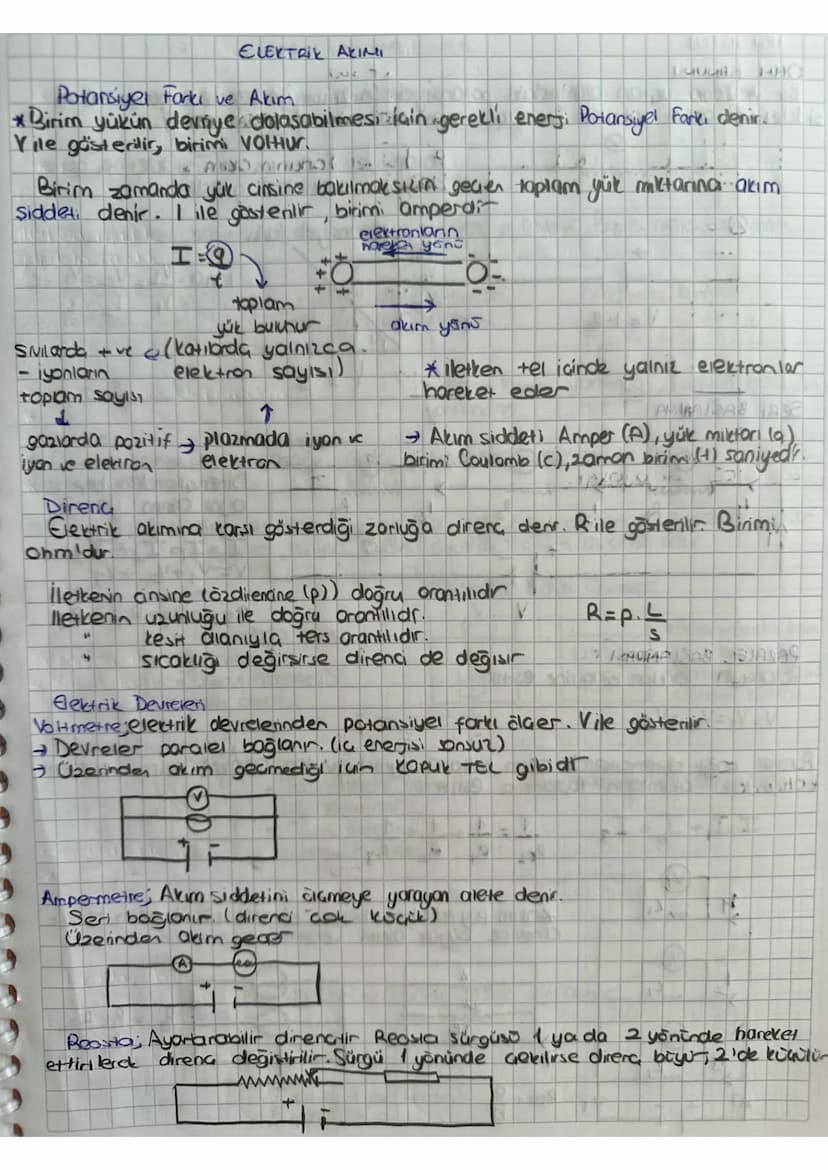 ELEKTRİK AKIMI
Potansiyel Farkı ve Akım
* Birim yükün devreye dolaşabilmesi için gerekli enerji Potansiyel Farkı denir.
V ile gösterilir, birimi VOLTtur.
Birim zamanda yük cinsine bakılmaksızın geçen toplam yük miktarına akım
şiddeti denir. I ile gösterilir, birimi amperdir
elektronların
hareket yönü
I = q
t
toplam
yük bulunur
akım yönü
Sıvılarda + ve
- iyonların
toplam sayısı
(katılarda yalnızca
elektron sayısı)
* iletken tel içinde yalnız elektronlar
hareket eder
gazlarda pozitif → plazmada iyon ve
iyon ve elektron elektron
→ Akım şiddeti Amper (A), yük miktarı (q)
birimi Coulomb (c), zaman birimi (t) saniyedir.
Direnç
Elektrik akımına karşı gösterdiği zorluğa direnç denir. R ile gösterilir. Birimi
ohm'dur.
İletkenin cinsine (özdirencine (p)) doğru orantılıdır
İletkenin uzunluğu ile doğru orantılıdır.
" kesit alanıyla ters orantılıdır.
" sıcaklığı değişirse direnci de değişir
R = p . L
S
Elektrik Devreleri
Voltmetre; elektrik devrelerinden potansiyel farkı ölçer. V ile gösterilir.
→ Devreler paralel bağlanır. (iç enerjisi sonsuz)
→ Üzerinden akım geçmediği için KOPUK TEL gibidir
V
+ -
Ampermetre; Akım şiddetini ölçmeye yarayan alete denir.
Seri bağlanır. (direnci çok küçük)
Üzerinden akım geçer
A
+ -
Reosta; Ayarlanabilir dirençtir Reosta sürgüsü 1 ya da 2 yönünde hareket
ettirilerek direnç değiştirilir. Sürgü 1 yönünde çekilirse direnç büyür, 2'de küçülür
+ -